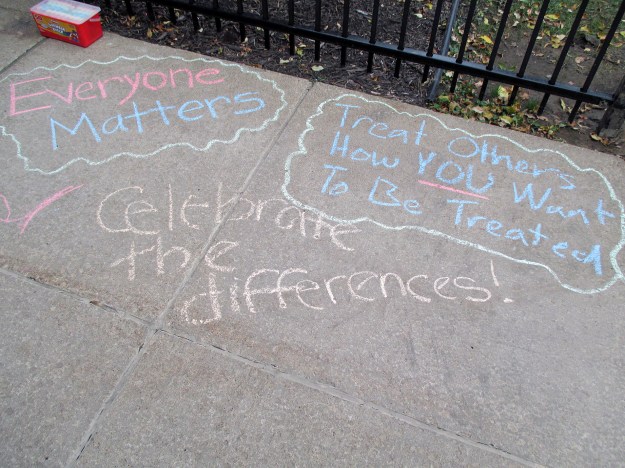 Everyone
Matters
Treat Others
How YOU Want
To Be Treated
Celebrate
the
differences!